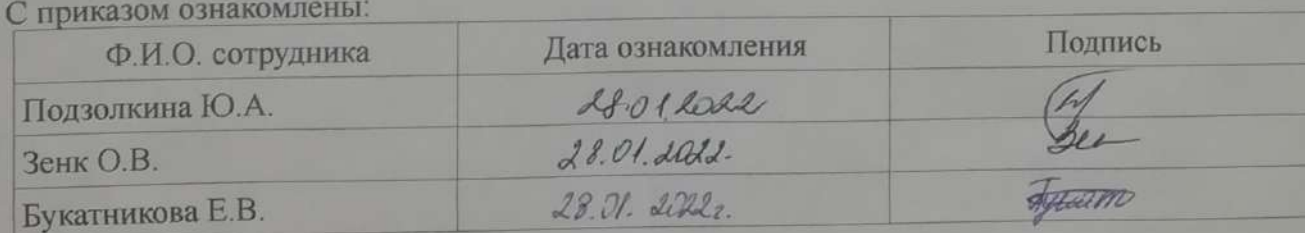 С приказом ознакомлены:
Ф.И.О. сотрудника Дата ознакомления Подпись
Подзолкина Ю.А. 28.01.2022
Зенк О.В. 28.01.2022.
Букатникова Е.В. 28.01.2022г.